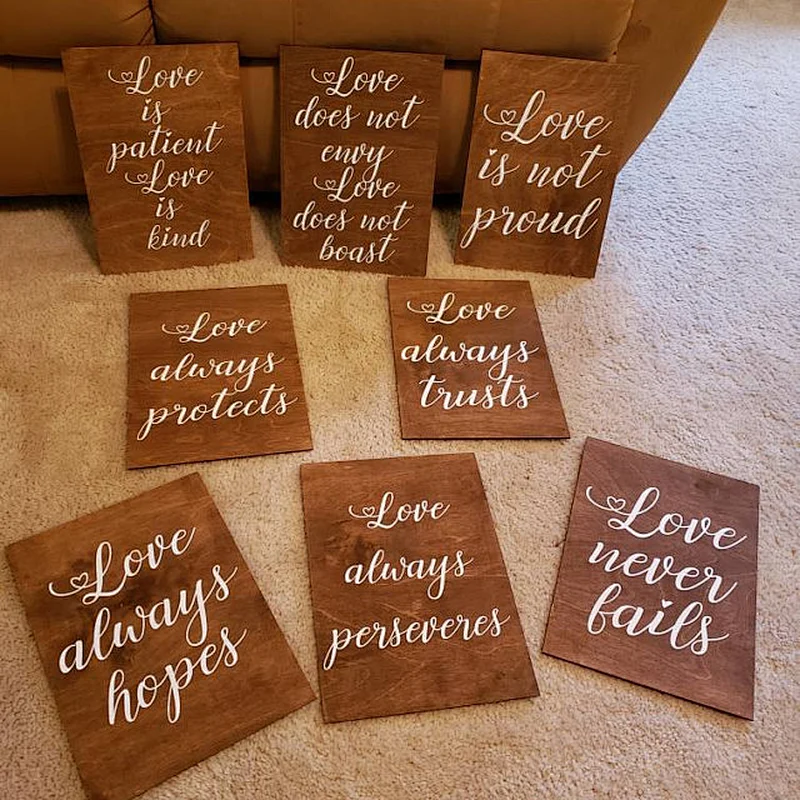 Love
is
patient
Love
is
kind
Love
does not
envy
Love
does not
boast
Love
is not
proud
Love
always
protects
Love
always
trusts
Love
always
hopes
Love
always
perseveres
Love
never
fails